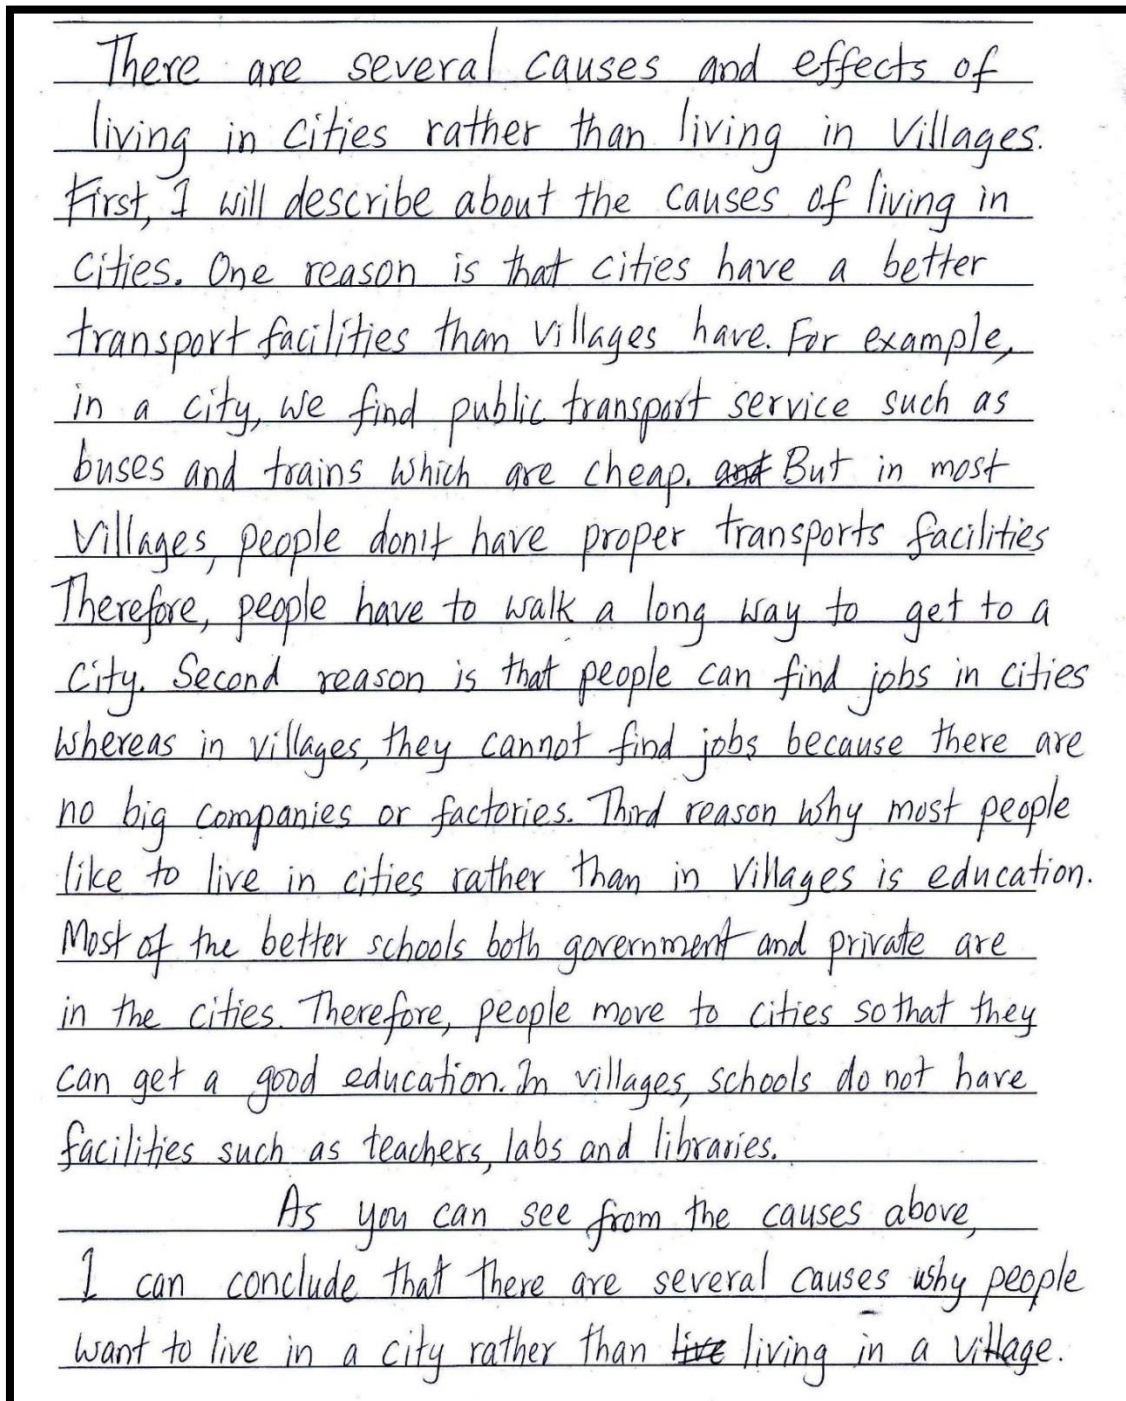 There are several causes and effects of
living in cities rather than living in villages.
First, I will describe about the causes of living in
cities. One reason is that cities have a better
transport facilities than villages have. For example,
in a city, we find public transport service such as
buses and trains which are cheap. and But in most
villages, people don't have proper transports facilities
Therefore, people have to walk a long way to get to a
city. Second reason is that people can find jobs in cities
whereas in villages, they cannot find jobs because there are
no big companies or factories. Third reason why most people
like to live in cities rather than in villages is education.
Most of the better schools both government and private are
in the cities. Therefore, people move to cities so that they
can get a good education. In villages, schools do not have
facilities such as teachers, labs and libraries.
As you can see from the causes above,
I can conclude that there are several causes why people
want to live in a city rather than live living in a village.